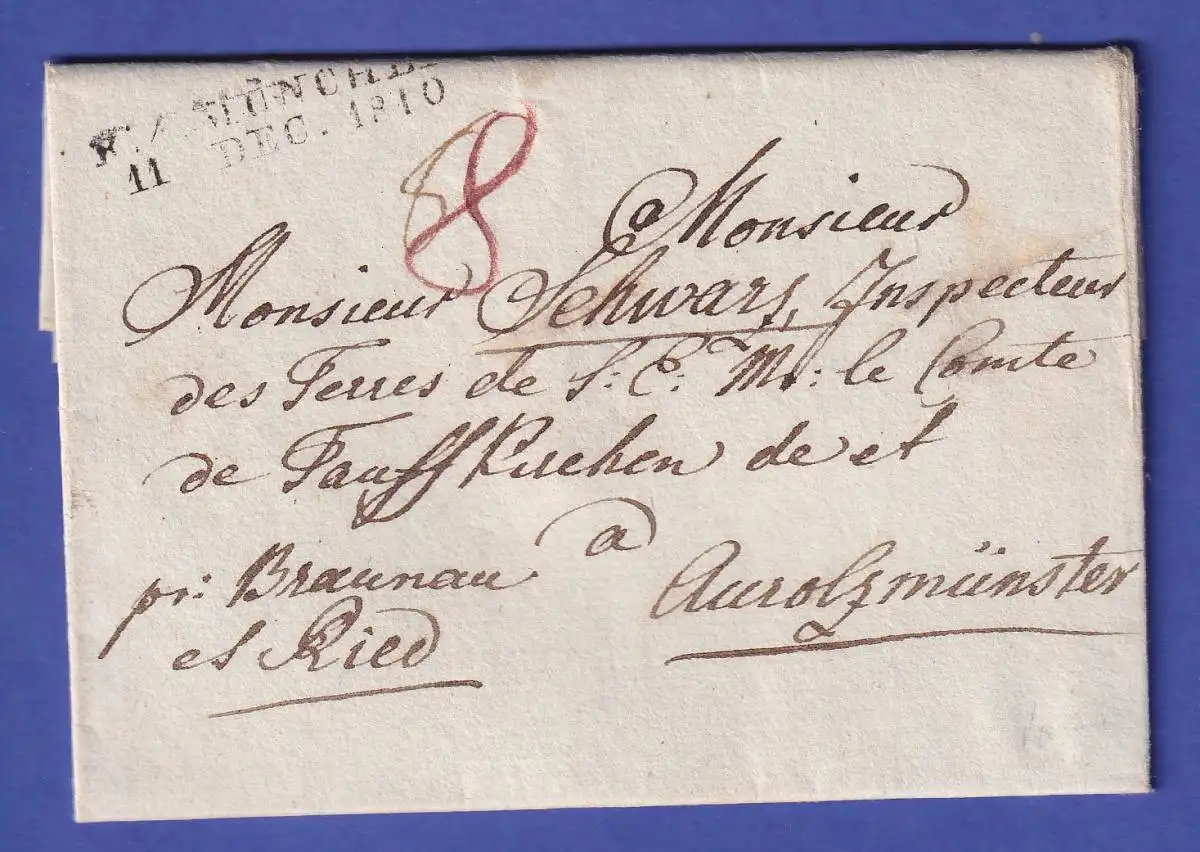 R. 4. MÜNCHEN
11 DEC. 1810
8
à Monsieur
Monsieur Schwarz, Inspecteur
des Terres de S: E: Mr: le Comte
de Tauffkirchen de et
à
Aurolzmünster
pr: Braunau
et Ried